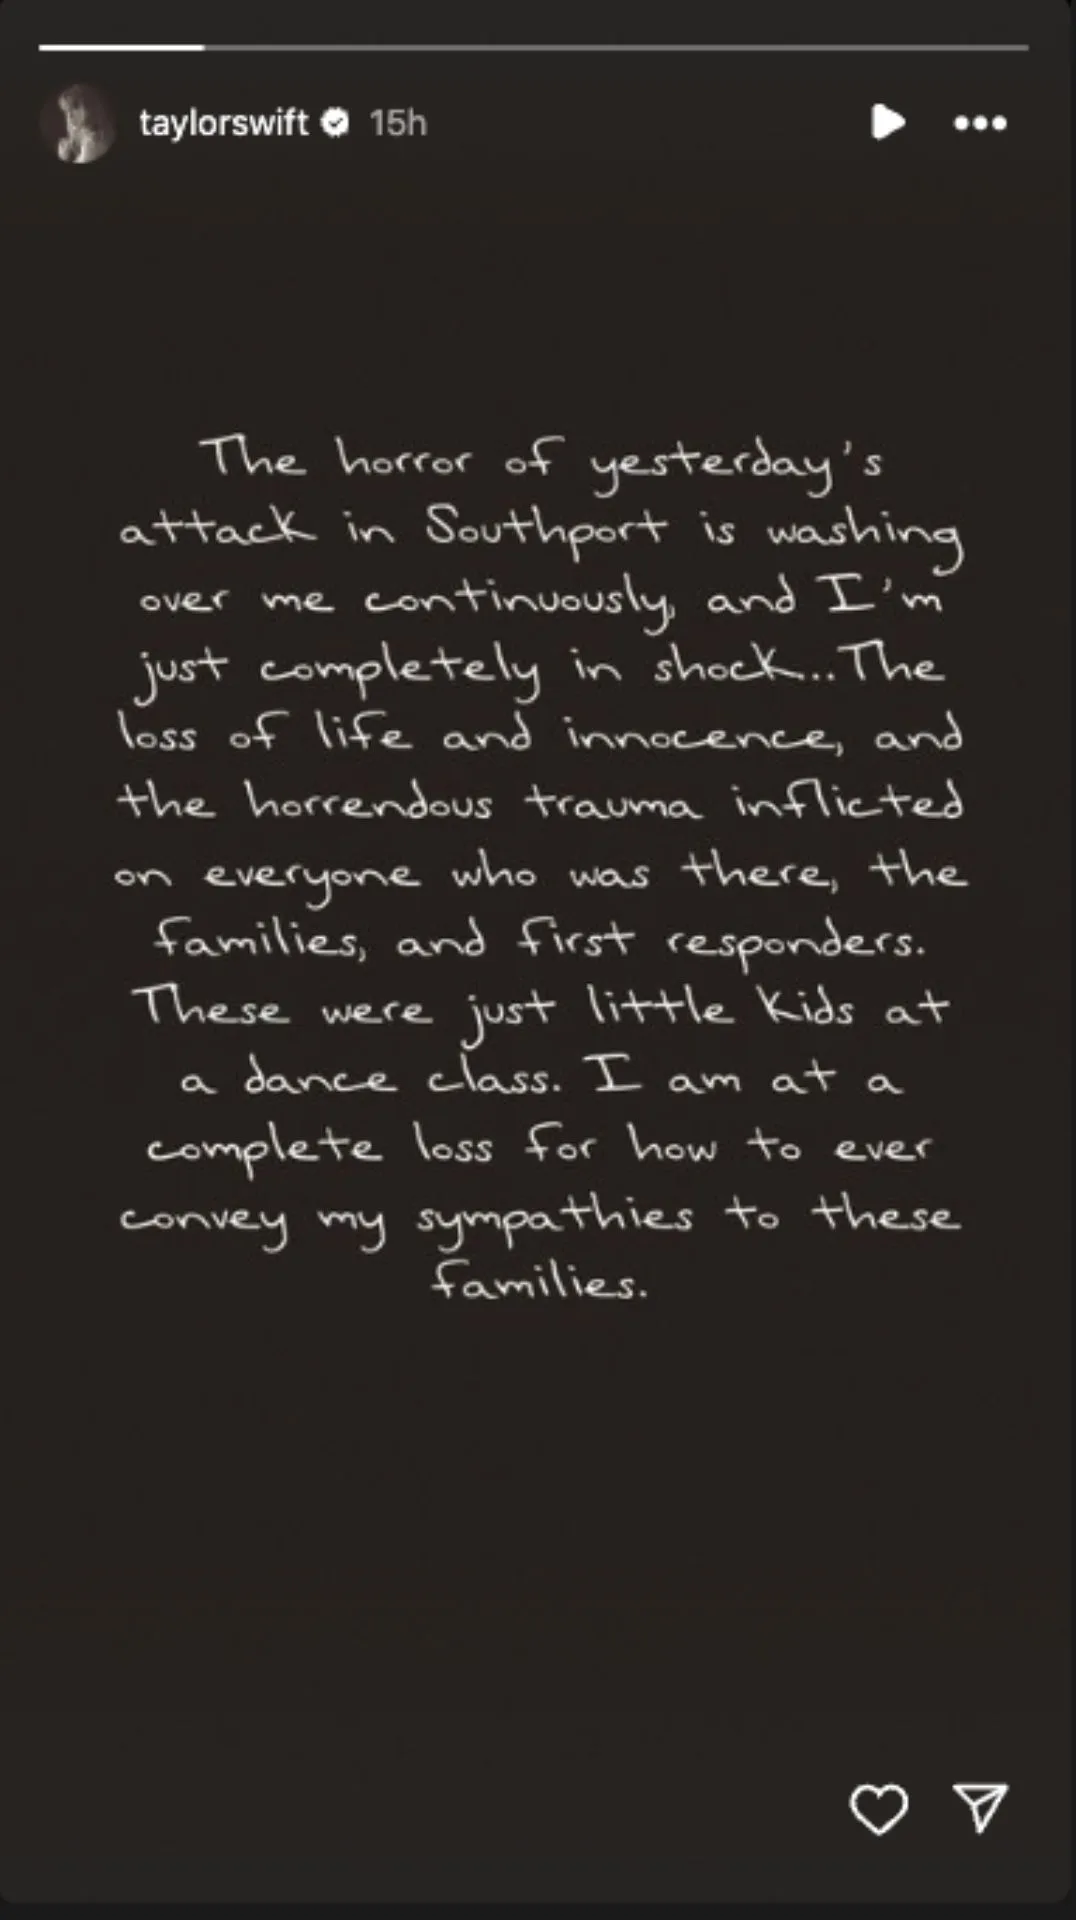 taylorswift 15h
The horror of yesterday's
attack in Southport is washing
over me continuously, and I'm
just completely in shock...The
loss of life and innocence, and
the horrendous trauma inflicted
on everyone who was there, the
families, and first responders.
These were just little kids at
a dance class. I am at a
complete loss for how to ever
convey my sympathies to these
families.